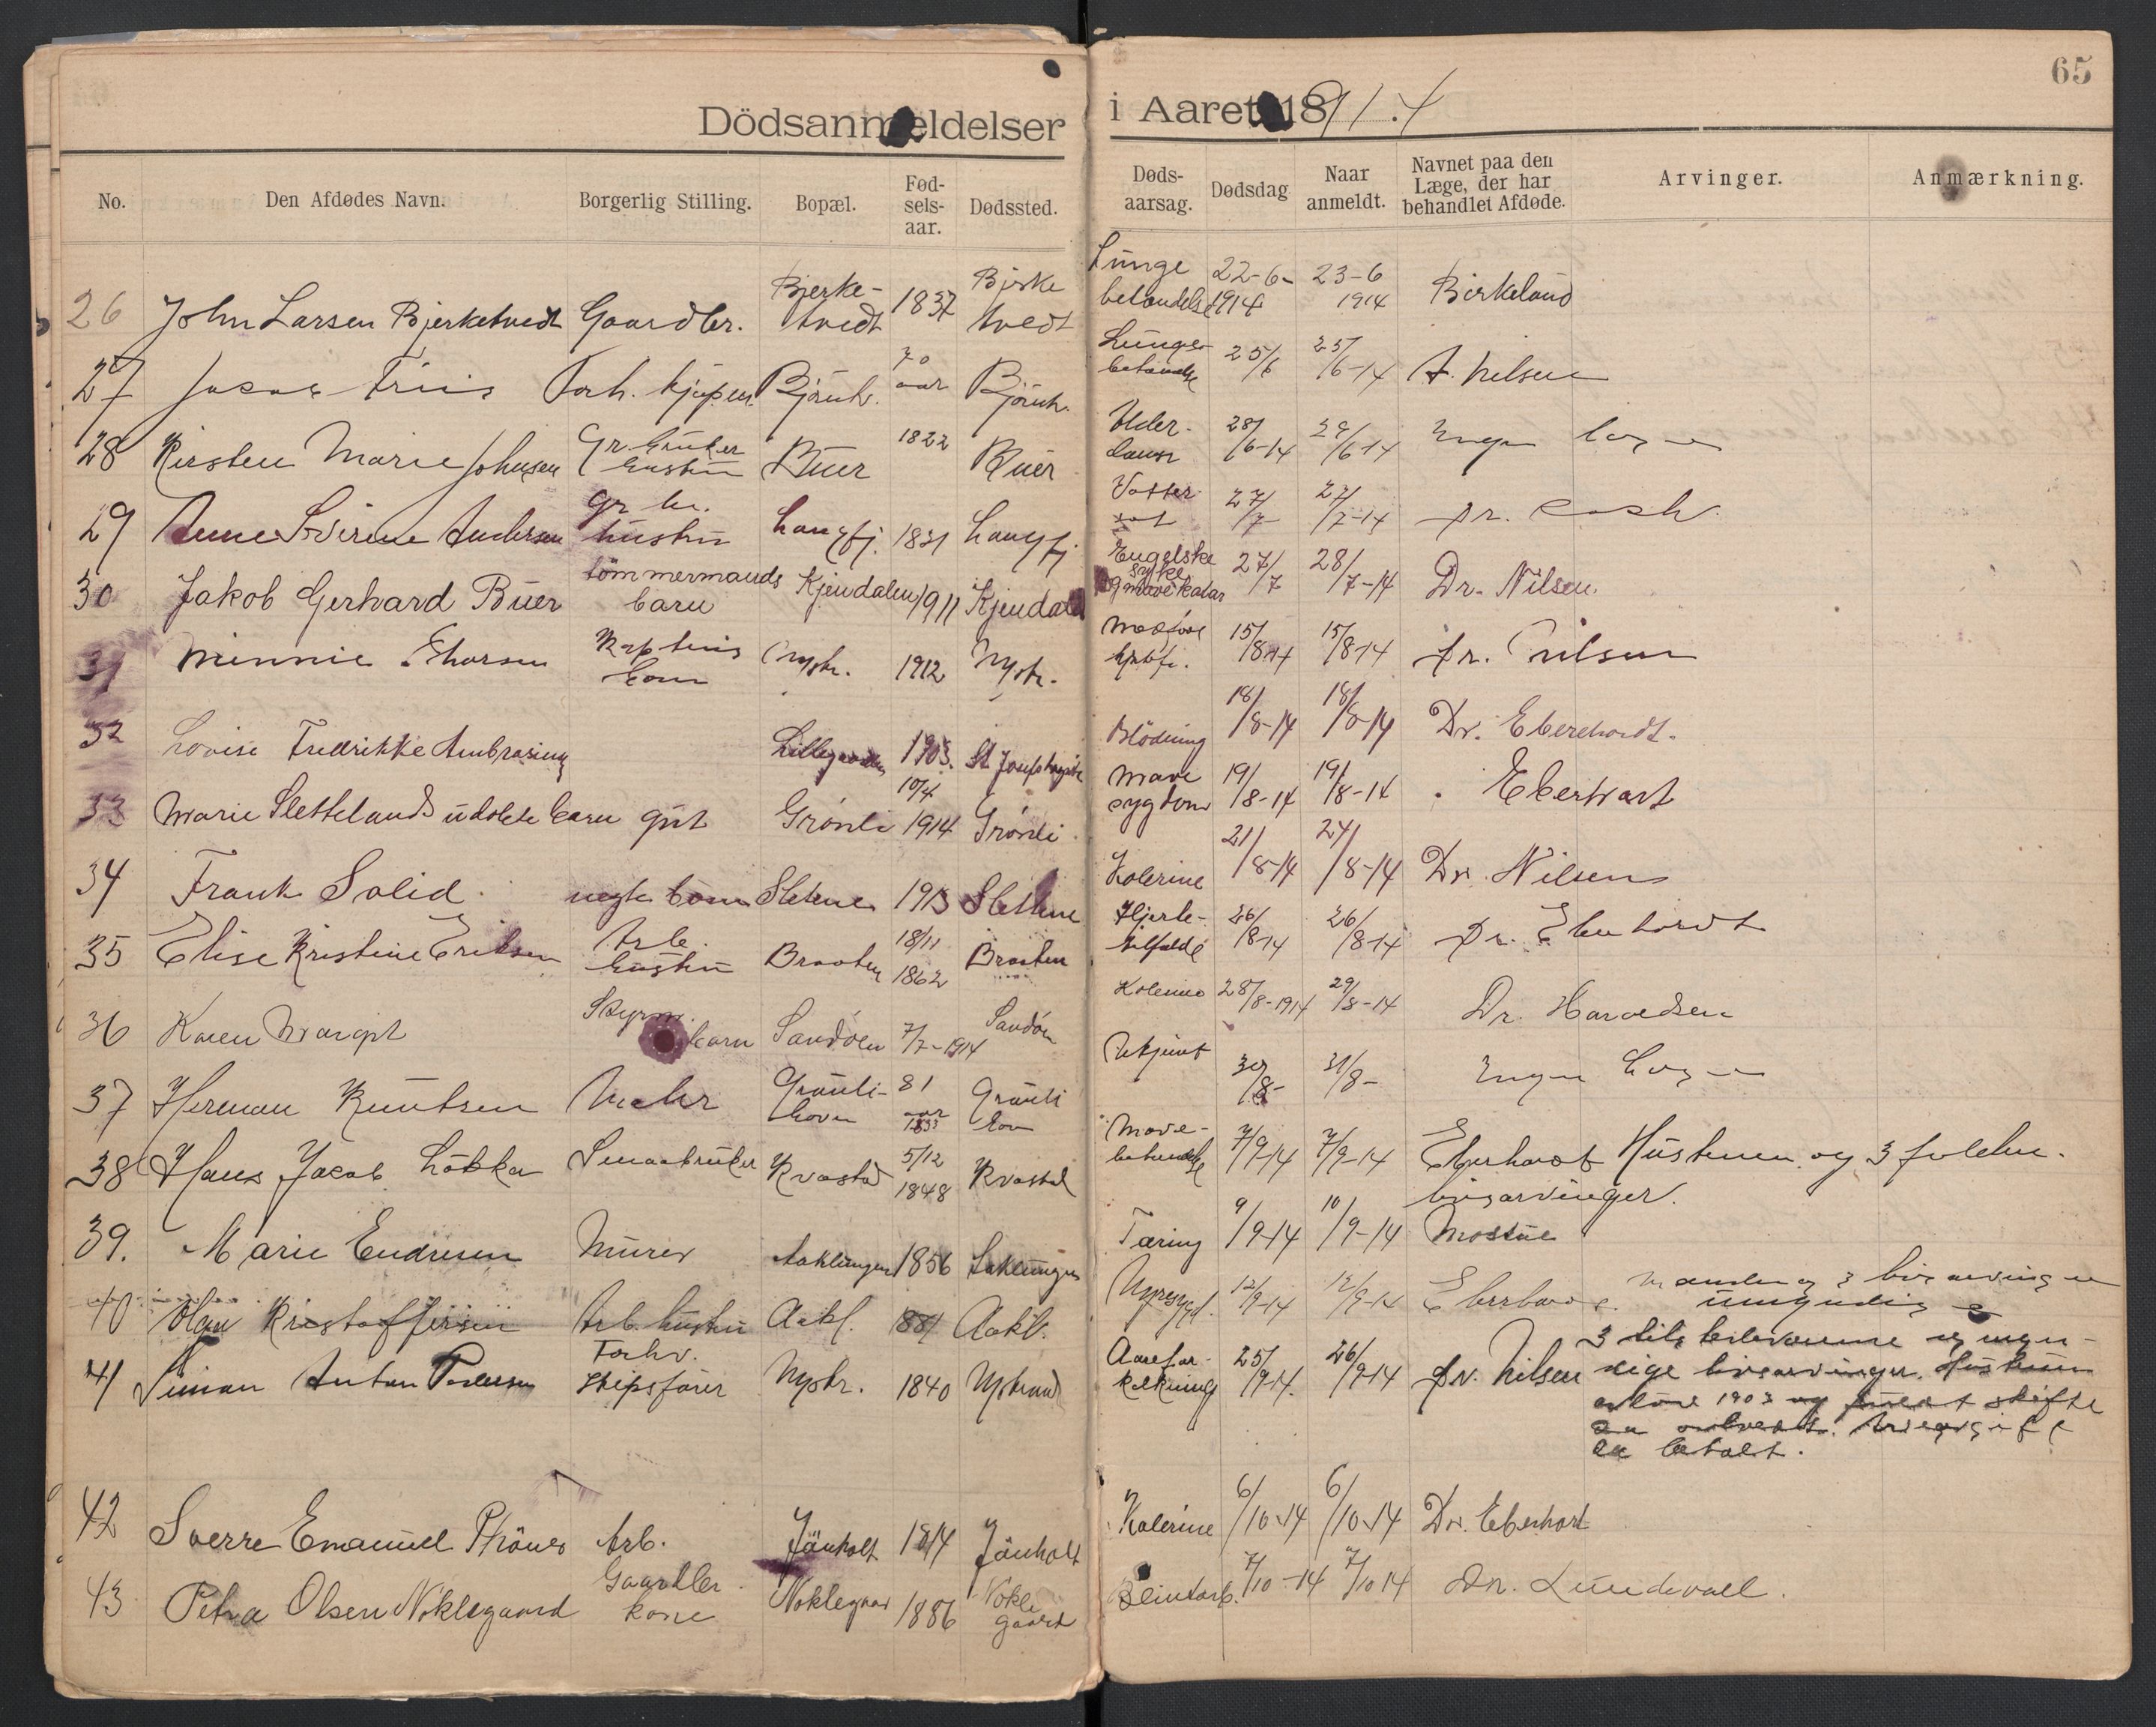 65
Dödsanmeldelser i Aaret 1891.4
No. Den Afdødes Navn. Borgerlig Stilling. Bopæl. Fød-sels-aar. Dødssted. Døds-aarsag. Dødsdag Naar anmeldt. Navnet paa den Læge, der har behandlet Afdøde. Arvinger. Anmærkning.
26 John Larsen Bjerketvedt Gaardbr. Bjerke-tvedt 1837 Bjerke tvedt Lunge betændelse 22-6-1914 23-6 1914 Birkeland
27 Jacob Friis Forh. Björnh. 70 aar Björnh. Lunge betændelse 25/6 25/6-14 A. Nilsen
28 Kirsten Marie Johnsen Gr. bruker hustru Buer 1822 Buer Alder-dom 28/6-14 29/6-14 Ingen
29 Anne Severine Andersen Gr br. hustru Langfj. 1831 Langfj. Vatter sot 27/7 27/7-14 Dr.
30 Jakob Gerhard Buer tömmermands barn Kjendalen 1911 Kjendal Engelske syke og mave katar 27/7 28/7-14 Dr. Nilsen.
31 Minnie Thorsen Kapteins barn Nystr. 1912 Nystr. 15/8-14 15/8-14 Dr. Nilsen
32 Lovise Fredrikke Lillegaarden 1903. St Josefs Blödning 18/8-14 18/8-14 Dr. Eberhardt.
33 Marie Slettelands udöbte barn gut Grönli 10/4 1914 Grönli Mave sygdom 19/8-14 19/8-14 Eberhart
34 Frank Solid. barn Slettene 1913 Slettene Kolerine 21/8-14 24/8-14 Dr. Nilsen
35 Elise Kristine Eriksen Arb. hustru Braaten 18/11 1862 Braaten Hjerte- 26/8-14 26/8-14 Dr. Eberhardt
36 Karen Margit Styrm. barn Sandöen 7/7-1914 Sandöen Kolerine 28/8-1914 29/8-14 Dr.
37 Herman Knutsen Grönli-hovn 81 aar 1833 Grönli Ukjent 30/8- 31/8- Ingen
38 Hans Jacob Lökka Smaabruker Kvastad 5/12 1848 Kvastad Mave-betændelse 7/9-14 7/9-14 Eberhardt Hustruen og 3
livsarvinger.
39. Marie Endresen Murer Aaklungen 1856 Aaklungen Tæring 9/9-14 10/9-14 Mostue
40 Olga Kristoffersen Arb. hustru Aakl. 1881 Aakl. Nyresygd. 12/9-14 12/9-14 Eberhard Manden og 3 livsarvinger
umyndige
41 Simon Anton Pedersen Forhv. Skipsförer Nystr. 1840 Nystrand Aarefor-kalkning 25/9-14. 26/9-14 Dr. Nilsen 3 myn-
dige livsarvinger. Hustruen
1903 og skifte
Arveavgift
er betalt.
42 Sverre Emanuel Arb. Jönholt 1914 Jönholt Kolerine 6/10-14 6/10-14 Dr. Eberhart
43 Petra Olsen Noklegaard Gaardbr. kone Noklegaar 1886 Nokle gaard Blintarb. 7/10-14 7/10 14 Dr. Lundevall.